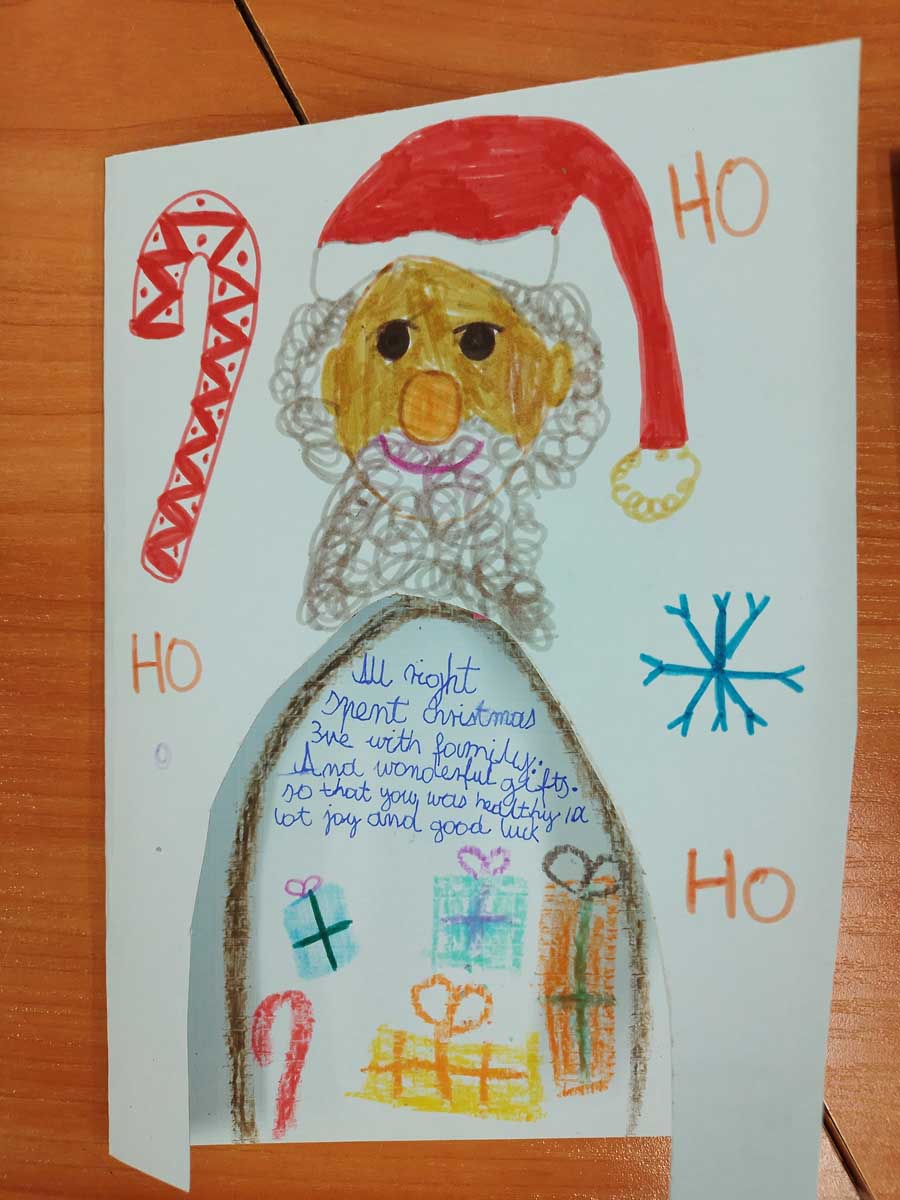 HO
HO
All right
spent christmas
3ve with family.
And wonderful gifts.
so that you was healthy, a
lot joy and good luck
HO